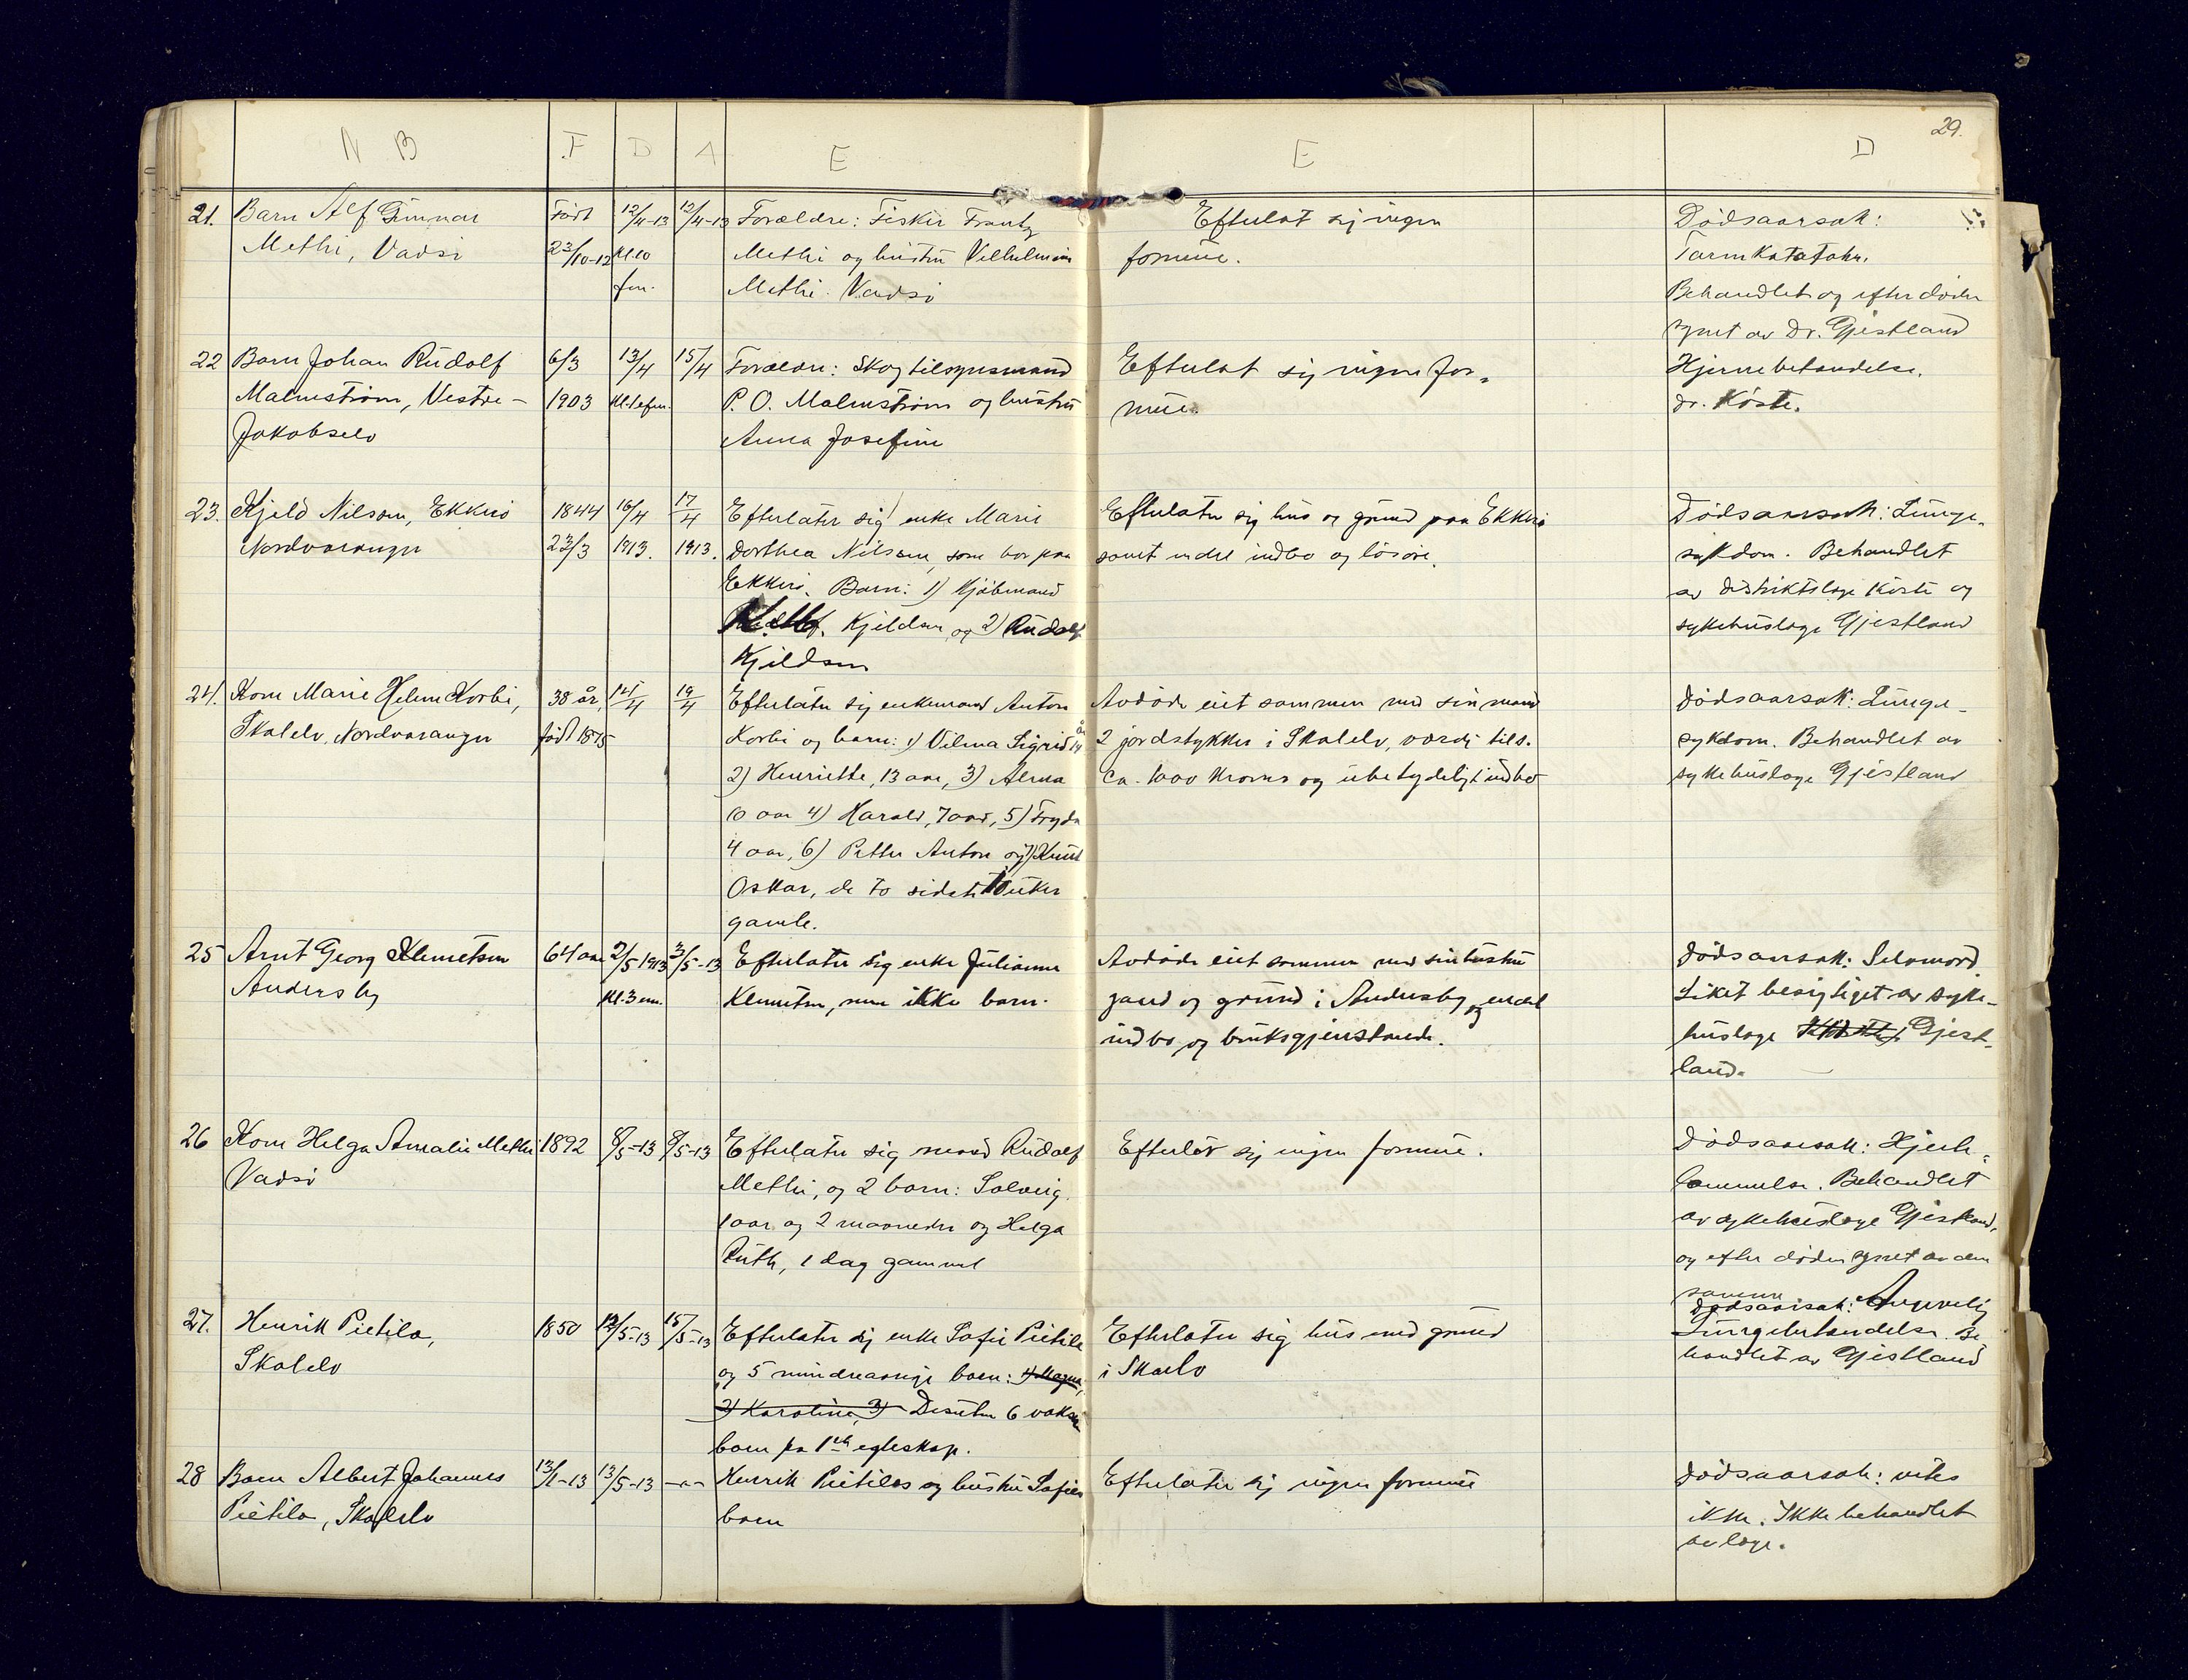 29.
N B F D A E E D
21. Barn Alf Gunnar
Methi, Vadsö
Födt
23/10-12
12/4-13
Kl. 10
fm.
12/4-13
Forældre: Fisker Frantz
Methi og hustru Vilhelmine
Methi. Vadsö
Efterlot sig ingen
formue.
Dödsaarsak:
Tarmkatatahr.
Behandlet og efter döden
synet av Dr. Gjestland
22 Barn Johan Rudolf
Malmström, Vestre-
Jakobselv
6/3
1903
13/4
Kl. 1 efm.
15/4
Forældre: Skogtilsynsmand
P. O. Malmström og hustru
Anna Josefine
Efterlot sig ingen for-
mue.
Hjernebetændelse.
dr. Köste.
23. Kjeld Nilsen, Ekkerö
Nordvaranger
1844
23/3
16/4
1913.
17/4
1913.
Efterlater sig enke Marie
Dorthea Nilsen, som bor paa
Ekkerö. Barn: 1) Kjöbmand
Kjeldsen og 2) Rudolf
Kjeldsen
Efterlater sig hus og grund paa Ekkerö
samt endel indbo og lösöre.
Dödsaarsak: Lunge-
sykdom. Behandlet
av distriktslæge Köste og
sykehuslæge Gjestland
24. Kone Marie Helene Korbi,
Skalelv, Nordvaranger
38 år
födt 1875
14/4
19/4
Efterlater sig enkemand Anton
Korbi og barn: 1) Vilma Sigrid 14 år
2) Henriette, 13 aar, 3) Alma
10 aar 4) Harald, 7 aar, 5) Fryda
4 aar, 6) Petter Anton og 7) Knut
Oskar, de to sidste 10 uker
gamle.
Avdöde eiet sammen med sin mand
2 jordstykker i Skalelv, værdi tils.
ca. 1000 kroner og ubetydeligt indbo
Dödsaarsak: Lunge-
sykdom. Behandlet av
sykehuslæge Gjestland
25 Arnt Georg Klemetsen
Andersby
64 aar
2/5 1913
Kl. 3 em.
3/5-13
Efterlater sig enke Julianne
Klemetsen, men ikke barn.
Avdöde eiet sammen med sin hustru
gaard og grund i Andersby, og endel
indbo og bruksgjenstande.
Dödsaarsak: Selvmord.
Liket besigtiget av syke-
huslæge Gjest-
land.
26 Kone Helga Amalie Methi
Vadsö
1892
8/5-13
9/5-13
Efterlater sig mand Rudolf
Methi, og 2 barn: Solveig
1 aar og 2 maaneder og Helga
Ruth, 1 dag gammel
Efterlot sig ingen formue.
Dödsaarsak: Hjerte-
lammelse. Behandlet
av sykehuslæge Gjestland,
og efter döden synet av den
samme
27. Henrik Pietilo,
Skalelv
1850
12/5-13
15/5-13
Efterlater sig enke Sofie Pietilo
og 5 mindreaarige barn: 1) Magna,
2) Karoline, 3) Desuten 6 voksne
barn fra 1ste egteskap.
Efterlater sig hus med grund
i Skaelv
Dödsaarsak: Angivelig
Lungebetændelse. Be
handlet av Gjestland
28 Barn Albert Johannes
Pietilo, Skalelv
13/1-13
13/5-13
-"-
Henrik Pietilos og hustru Sofies
barn
Efterlater sig ingen formue
Dödsaarsak: vites
ikke. Ikke behandlet
av læge.